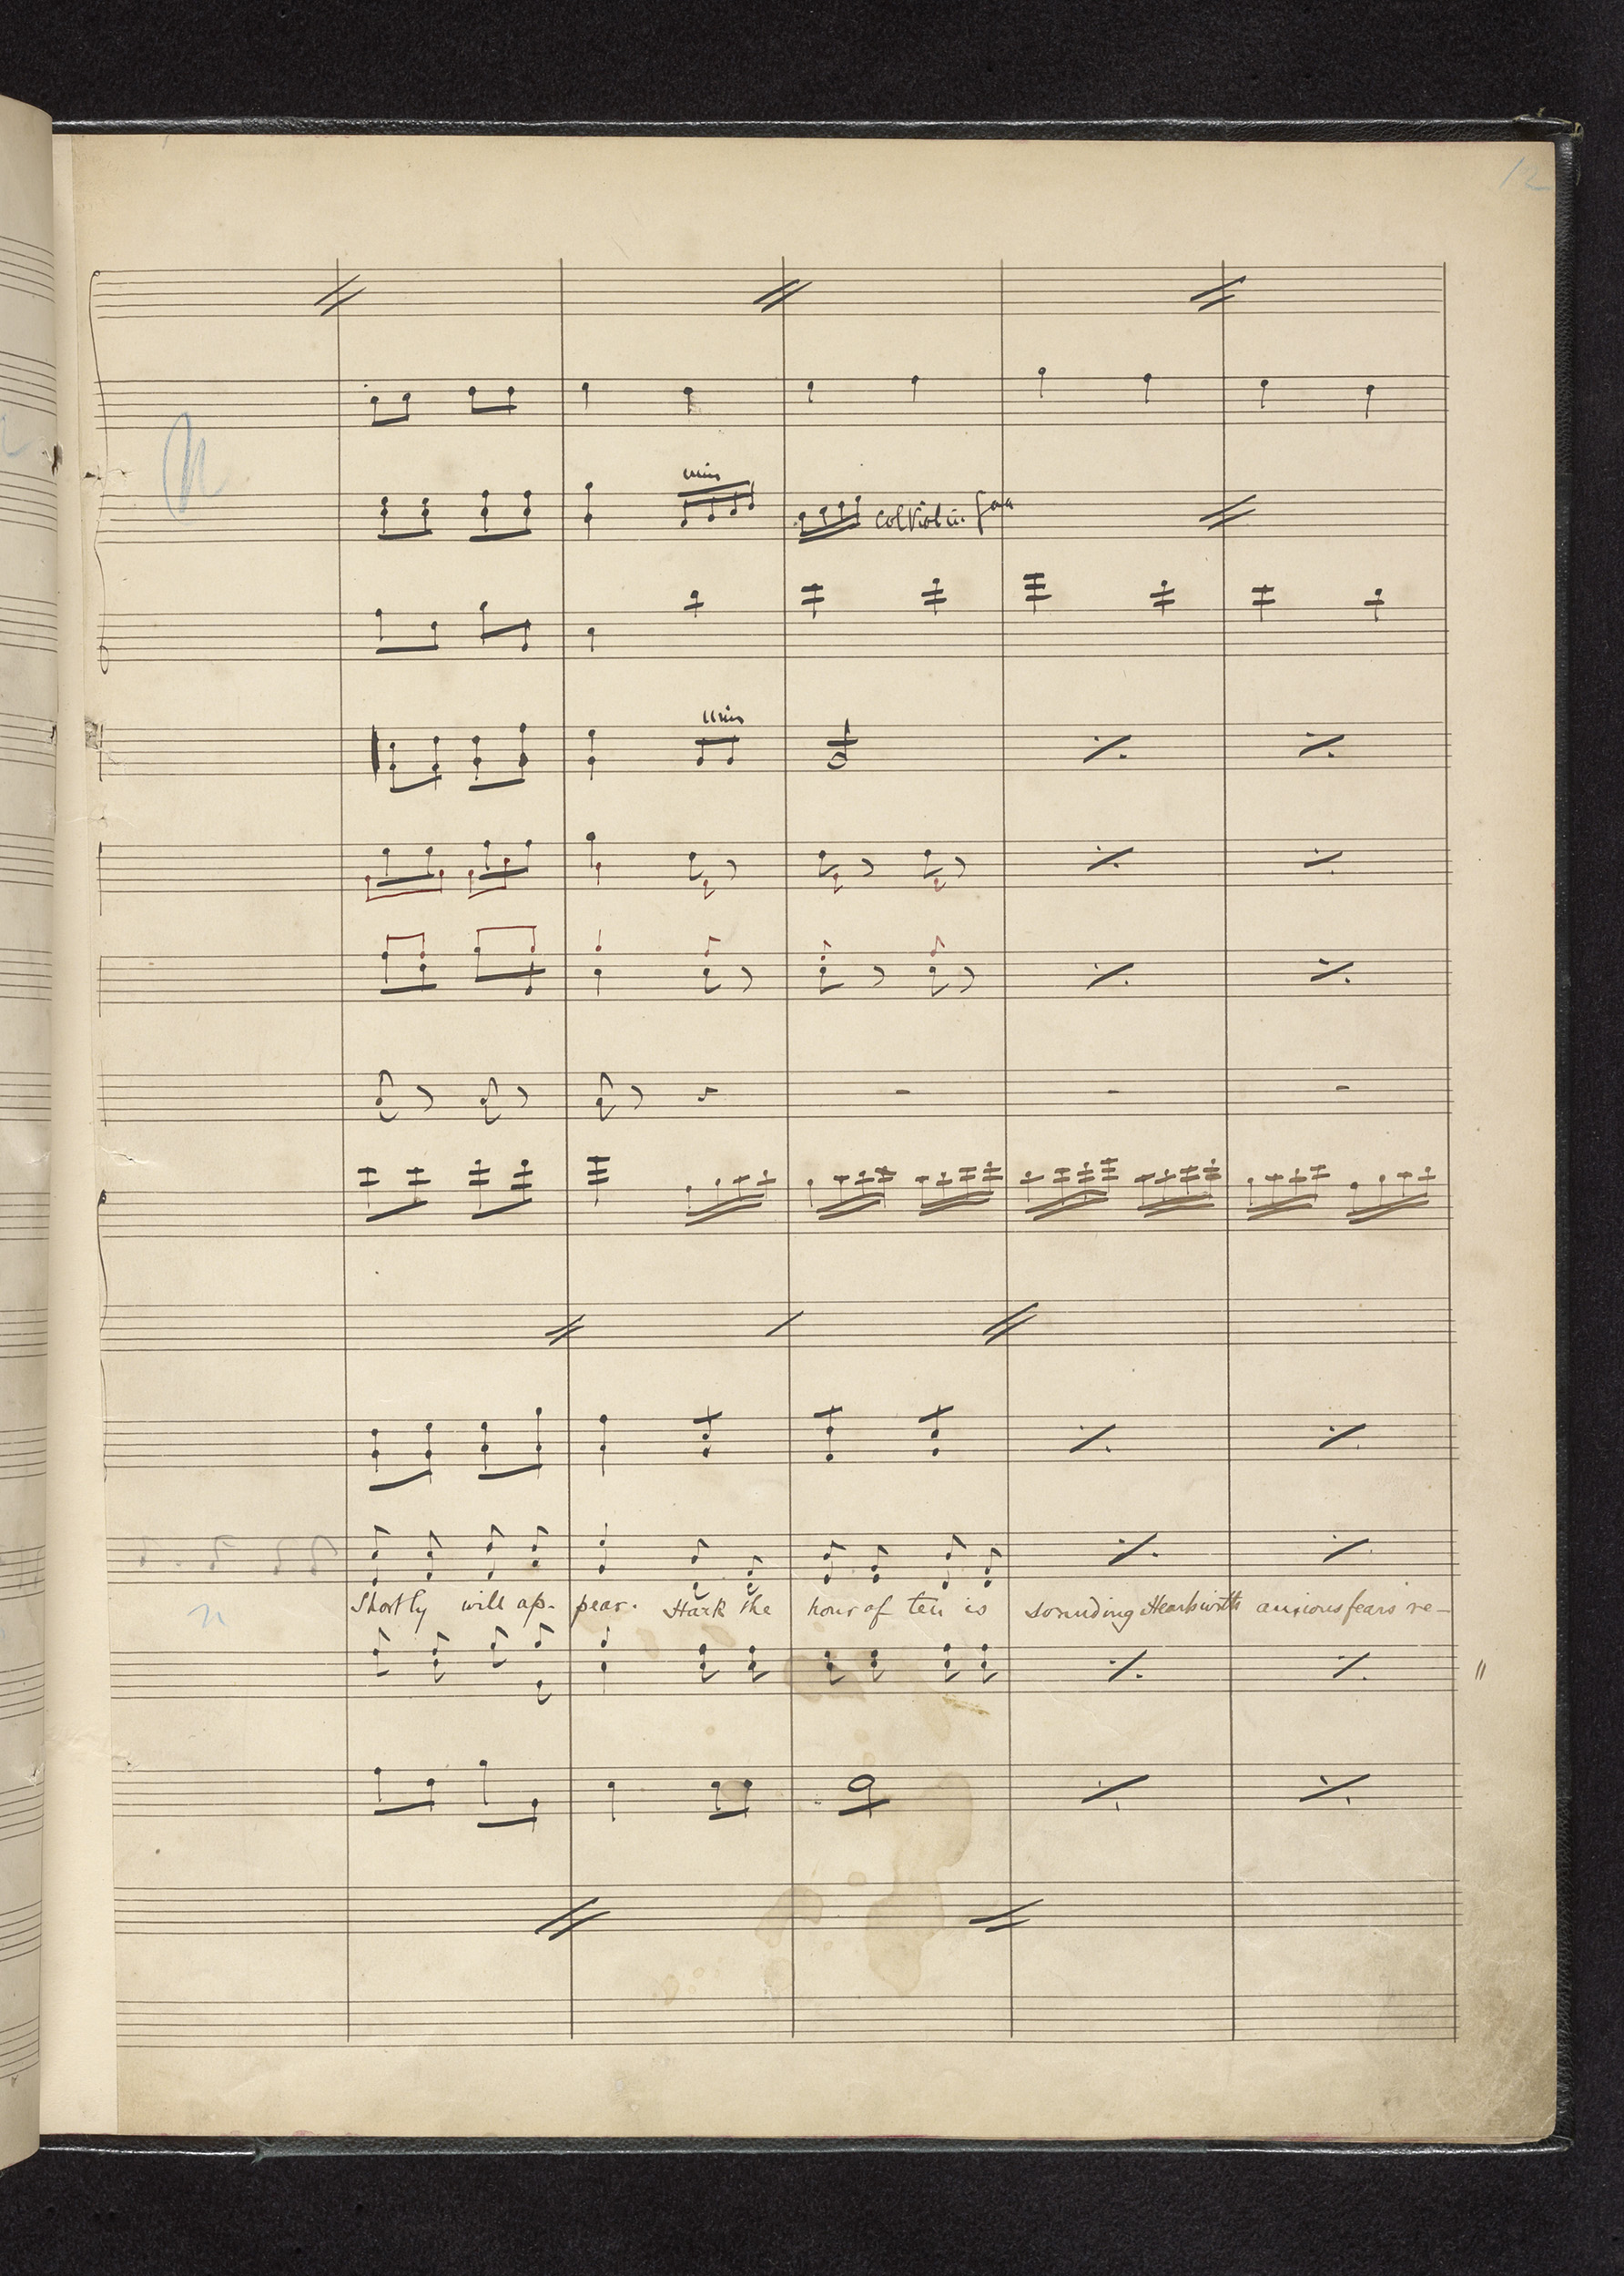 12
unis
col Violin 8va
unis
Shortly will ap- pear. Hark the hour of ten is sounding Hearts with anxious fears re-